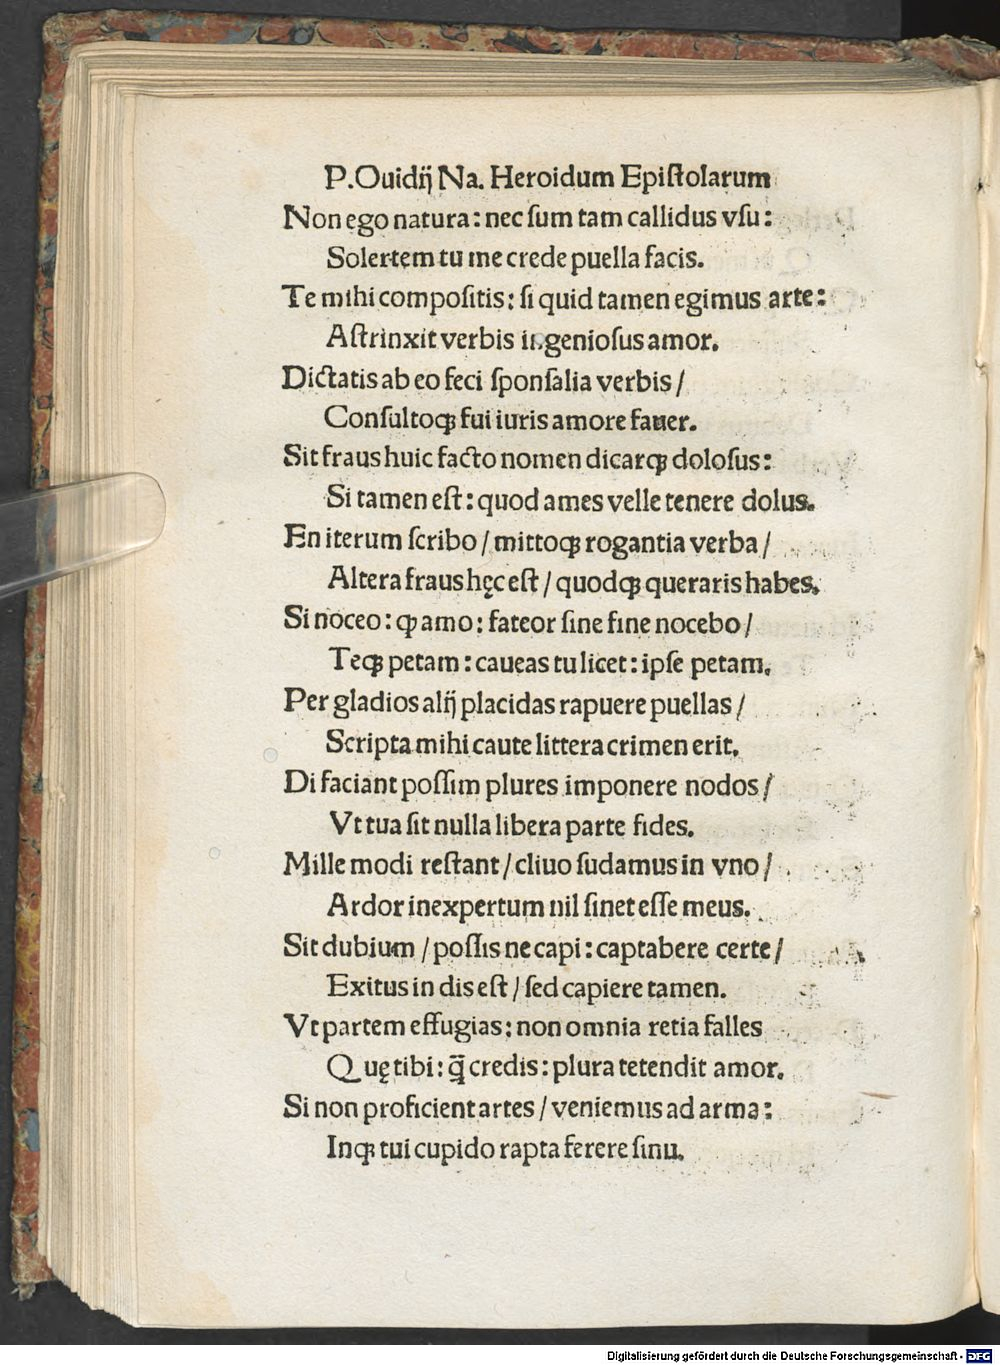 P.Ouidij Na. Heroidum Epiſtolarum
Non ego natura: nec ſum tam callidus vſu:
Solertem tu me crede puella facis.
Te mihi compoſitis: ſi quid tamen egimus arte:
Aſtrinxit verbis ingenioſus amor.
Dictatis ab eo feci ſponſalia verbis /
Conſultoqꝫ fui iuris amore fauer.
Sit fraus huic facto nomen dicarqꝫ doloſus:
Si tamen eſt: quod ames velle tenere dolus.
En iterum ſcribo / mittoqꝫ rogantia verba /
Altera fraus hęc eſt / quodqꝫ queraris habes.
Si noceo: ꝙ amo: fateor ſine fine nocebo /
Teqꝫ petam: caueas tu licet: ipſe petam.
Per gladios alij placidas rapuere puellas /
Scripta mihi caute littera crimen erit.
Di faciant poſſim plures imponere nodos /
Vt tua ſit nulla libera parte fides.
Mille modi reſtant / cliuo ſudamus in vno /
Ardor inexpertum nil ſinet eſſe meus.
Sit dubium / poſſis ne capi: captabere certe /
Exitus in dis eſt / ſed capiere tamen.
Vt partem effugias: non omnia retia falles
Quę tibi: q̃ credis: plura tetendit amor.
Si non proficient artes / veniemus ad arma:
Inqꝫ tui cupido rapta ferere ſinu.
Digitalisierung gefördert durch die Deutsche Forschungsgemeinschaft - DFG